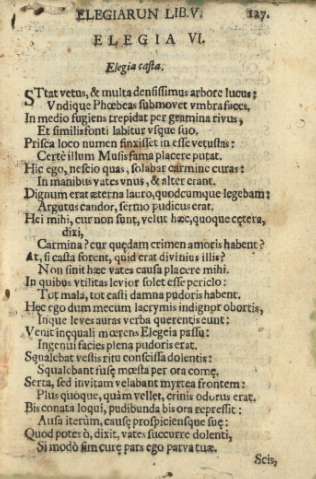 ELEGIARUN LIB.V. 127.
ELEGIA VI.
Elegia casta.
STtat vetus, & multa densissimus arbore lucus:
Vndique Phœbeas submovet vmbra faces.
In medio fugiens trepidat per gramina rivus,
Et similis fonti labitur vsque suo.
Prisca loco numen finxisset in esse vetustas:
Certè illum Musis fama placere putat.
Hic ego, nescio quas, solabar carmine curas:
In manibus vates vnus, & alter erant.
Dignum erat æterna lauro, quodcumque legebam:
Argutus candor, sermo pudicus erat.
Hei mihi, cur non sunt, velut hæc, quoque cętera,
dixi,
Carmina? cur quędam crimen amoris habent?
At, si casta forent, quid erat divinius illis?
Non sinit hæc vates causa placere mihi.
In quibus vtilitas levior solet esse periclo:
Tot mala, tot casti damna pudoris habent.
Hęc ego dum mecum lacrymis indignor obortis,
Inque leves auras verba querentis eunt:
Venit inęquali mœrens Elegeia passu:
Ingenui facies plena pudoris erat.
Squalebat vestis ritu conscissa dolentis:
Squalebant fusę mœsta per ora comę.
Serta, sed invitam velabant myrtea frontem:
Plus quoque, quàm vellet, crinis odorus erat.
Bis conata loqui, pudibunda bis ora repressit:
Ausa iterùm, causę prospiciensque suę:
Quod potes ò, dixit, vates succurre dolenti,
Si modò sim curę pars ego parva tuæ.
Scis,